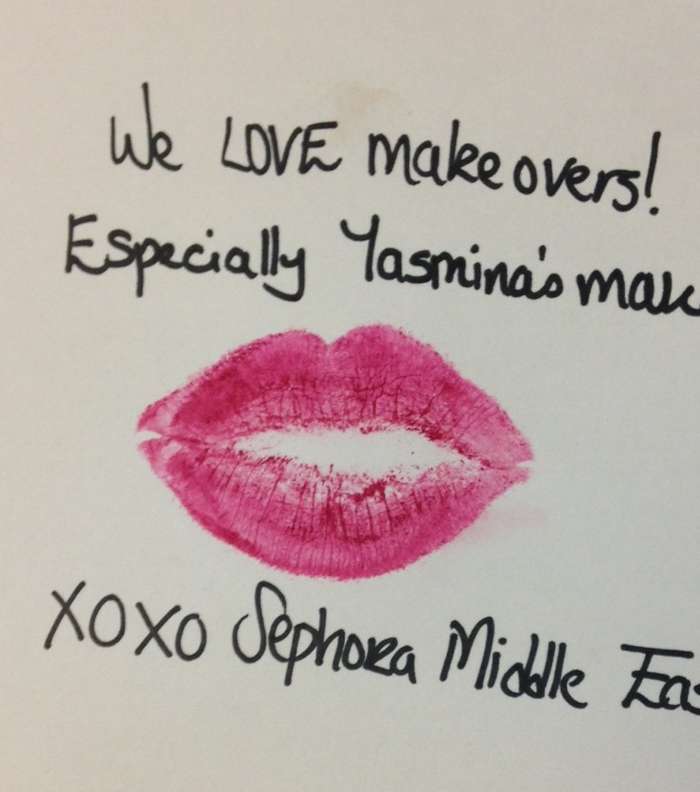 We LOVE makeovers!
Especially Yasmina's
XOXO Sephora Middle